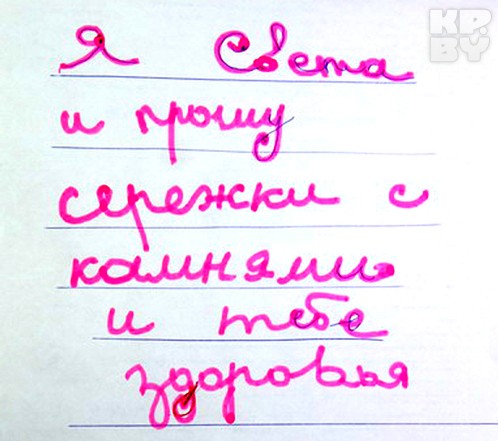 KP.
BY
Я Света
и прошу
сережки с
камнями
и тебе
здоровья